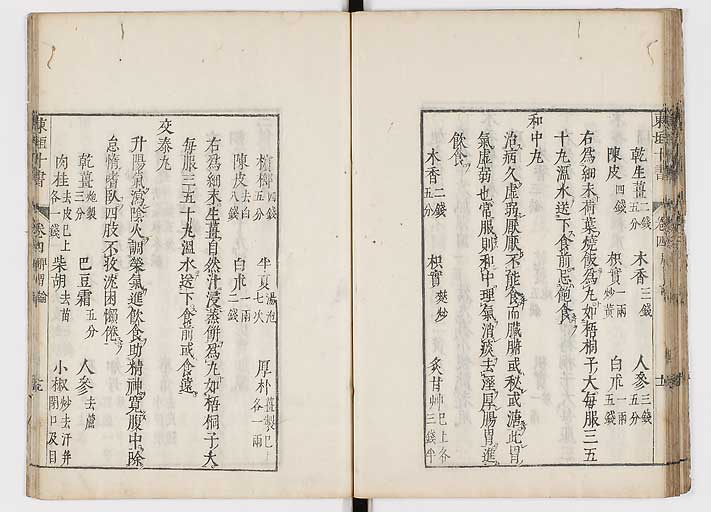 乾生薑二錢五分 木香三錢 人參三錢五分
陳皮四錢 枳實一兩炒黃 白朮一兩五錢
右爲細末荷葉燒飯爲丸如梧桐子大每服三五
十丸溫水送下食前忌飽食
和中丸
治病久虛弱厭厭不能食而臟腑或秘或溏此胃
氣虛弱也常服則和中理氣消痰去溼厚腸胃進
飲食
木香二錢五分 枳實麩炒 炙甘艸已上各三錢半
檳榔四錢五分 半夏湯泡七次 厚朴薑製已上各一兩
陳皮去白八錢 白朮一兩二錢
右爲細末生薑自然汁浸蒸餅爲丸如梧桐子大
每服三五十丸溫水送下食前或食遠
交泰丸
升陽氣瀉陰火調榮氣進飲食助精神寬腹中除
怠惰嗜臥四肢不收沈困懶倦
乾薑炮製三分 巴豆霜五分 人參去蘆
肉桂去皮已上各一錢 柴胡去苗 小椒炒去汗并閉口及目
東垣十書 卷四脾胃論